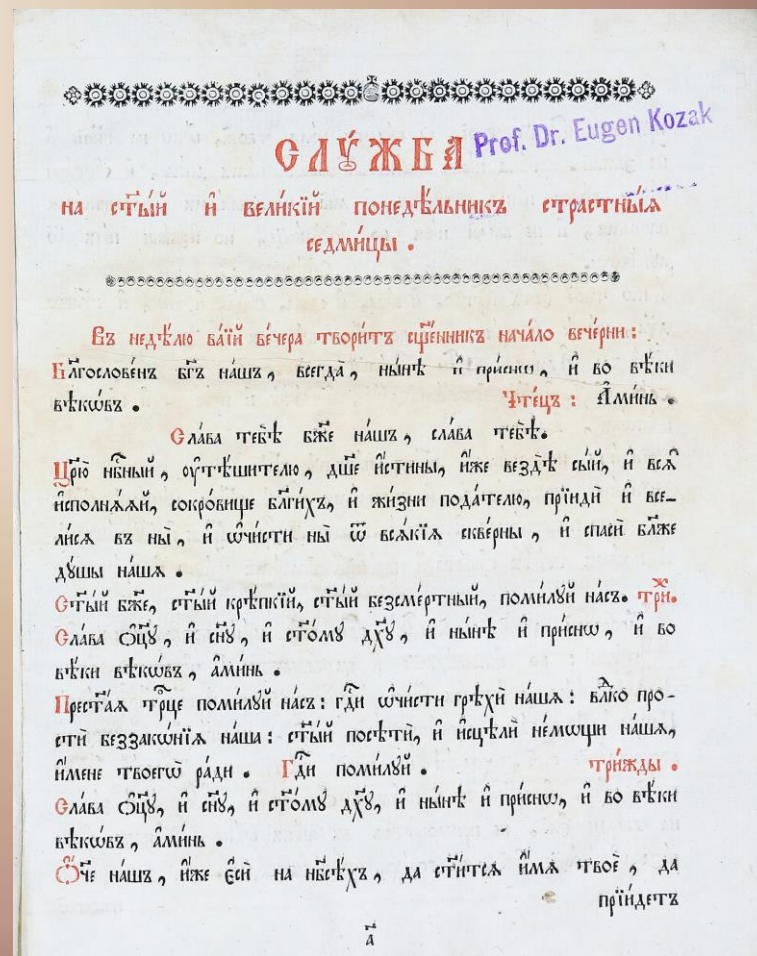 СЛꙋ́ЖБА
Prof. Dr. Eugen Kozak
на ст҃ы́й и҆ вели́кїй понедѣ́льникъ страстны́ѧ
седми́цы .
Въ недѣ́лю ва́їй ве́чера твори́тъ сщ҃е́нникъ нача́ло вече́рни :
Бл҃гослове́нъ бг҃ъ на́шъ , всегда̀ , ны́нѣ и҆ при́снѡ , и҆ во вѣ́ки
вѣкѡ́въ . Чте́цъ : А҆ми́нь .
Сла́ва тебѣ̀ бж҃е на́шъ , сла́ва тебѣ̀.
Цр҃ю̀ нбⷭ҇ный , ᲂу҆тѣ́шителю , дш҃е и҆́стины , и҆́же вездѣ̀ сы́й , и҆ всѧ̑
и҆сполнѧ́ѧй , сокро́вище бл҃ги́хъ , и҆ жи́зни пода́телю , прїидѝ и҆ все-
ли́сѧ въ ны̀ , и҆ ѡ҆чи́сти ны̀ ѿ всѧ́кїѧ скве́рны , и҆ спасѝ бл҃же
дꙋ́шы на́шѧ .
Ст҃ы́й бж҃е, ст҃ы́й крѣ́пкїй, ст҃ы́й безсме́ртный, поми́лꙋй на́съ. триⷤ.
Сла́ва ѻ҆ц҃ꙋ̀ , и҆ сн҃ꙋ , и҆ ст҃о́мꙋ дх҃ꙋ , и҆ ны́нѣ и҆ при́снѡ , и҆ во
вѣ́ки вѣкѡ́въ , а҆ми́нь .
Прест҃а́ѧ трⷪ҇це поми́лꙋй на́съ : гдⷭ҇и ѡ҆чи́сти грѣхѝ на́шѧ : влⷣко про-
стѝ беззакѡ́нїѧ на́ша : ст҃ы́й посѣтѝ , и҆ и҆сцѣлѝ не́мѡщи на́шѧ,
и҆́мене твоегѡ̀ ра́ди . Гдⷭ҇и поми́лꙋй . три́жды .
Сла́ва ѻ҆ц҃ꙋ̀ , и҆ сн҃ꙋ , и҆ ст҃о́мꙋ дх҃ꙋ , и҆ ны́нѣ и҆ при́снѡ, и҆ во вѣ́ки
вѣкѡ́въ , а҆ми́нь .
Ѻ҆́ч҃е на́шъ , и҆́же є҆сѝ на нб҃сѣ́хъ , да ст҃и́тсѧ и҆́мѧ твоѐ , да
прїи́детъ
а҃